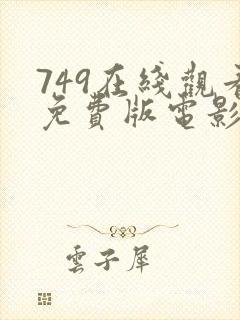 749在綫觀看
免費版電影
雲子犀